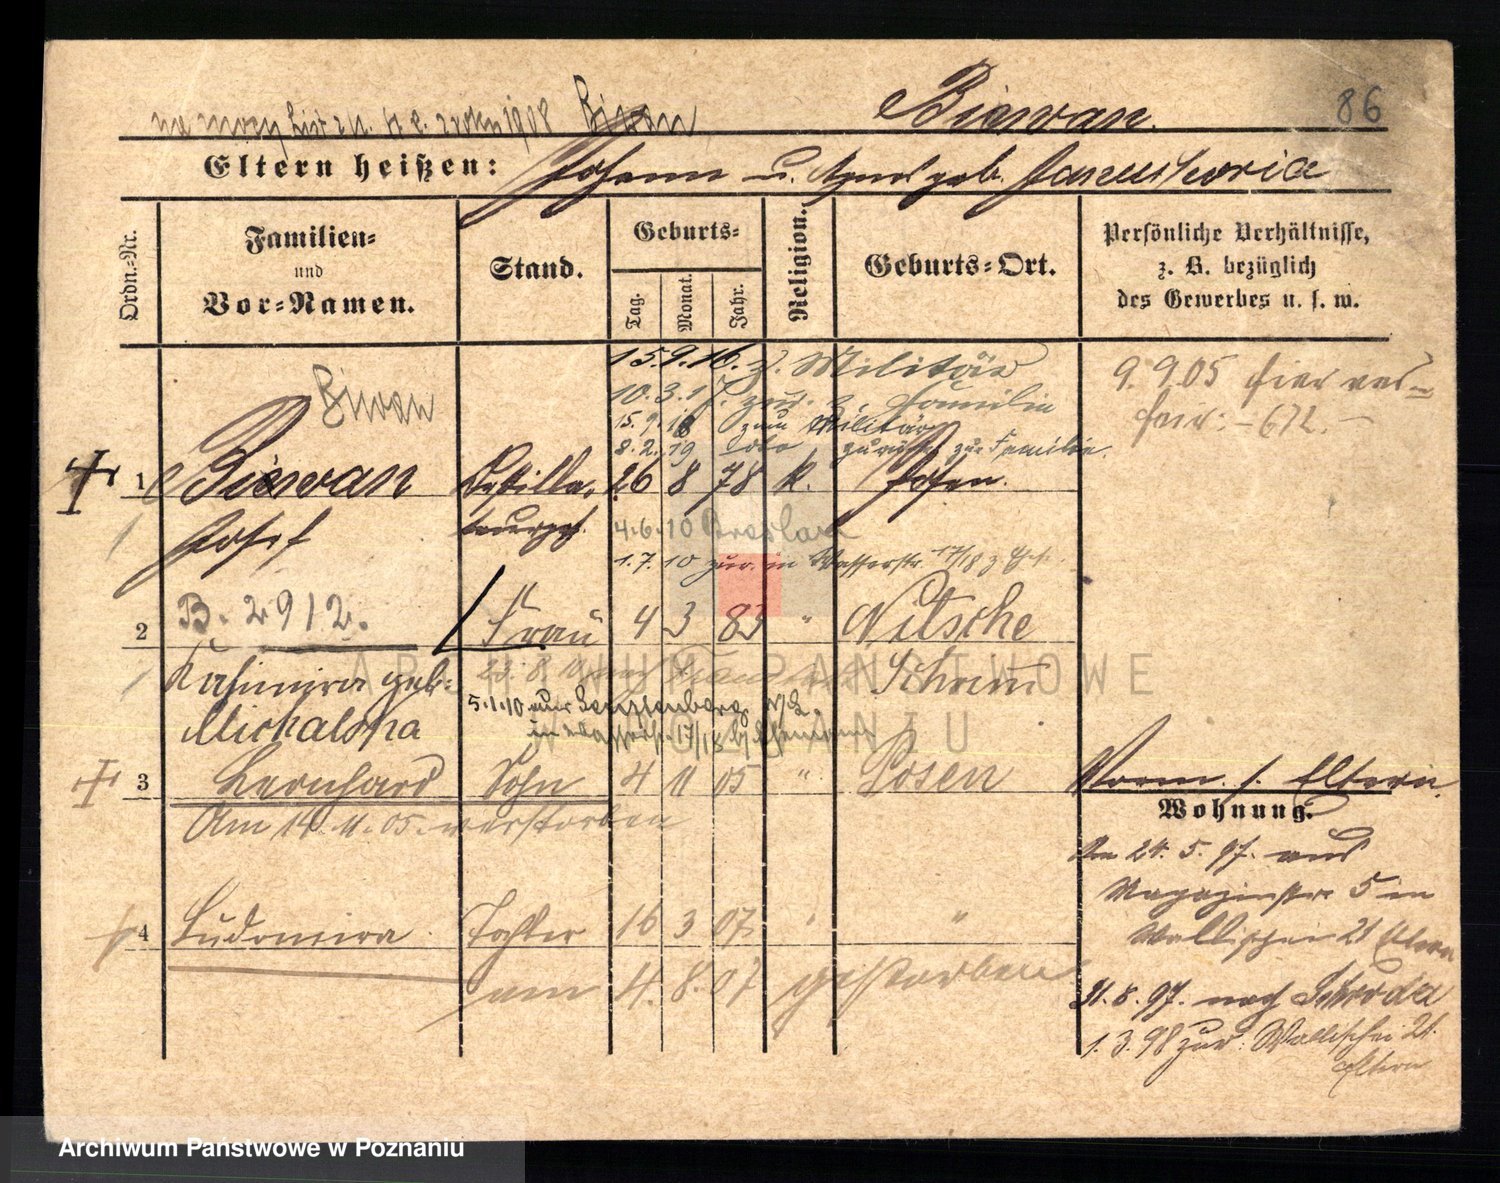 Biewan.
86
1908 Biwan
Eltern heißen: Johann u. Agnes geb.
Ordn.-Nr.
Familien-
und
Vor-Namen.
Stand.
Geburts-
Tag.
Monat.
Jahr.
Religion.
Geburts-Ort.
Persönliche Verhältnisse,
z. B. bezüglich
des Gewerbes u. s. w.
15.9.16. z. Militär
10.3.17. zur. z. Familie
15.9.18 zum Militär
8.2.19 zurück zur Familie.
9.9.05 hier
672.
Biwan
1 Biewan 26 8 78 k. Posen.
Josef
4.6.10 Breslau
1.7.10 zur. in Wasserstr. 17/18
2 B. 2912. Frau 4 3 83 " Nitsche
Kasimira geb. Schrim
Michalska
5.1.10
17/18
3 Bernhard Sohn 4 11 05 " Posen
Am 14.11.05. verstorben
Vorm. s. Eltern.
Wohnung.
24.5.97. aus
Magazinstr. 5 in
Wallischei 21 Eltern
4 Ludomira Tochter 16 3 07 " "
am 4.8.07 gestorben
31.8.97. nach Schroda
1.3.98 zur. Wallischei 21.
Eltern
ARCHIWUM PAŃSTWOWE
W POZNANIU
Archiwum Państwowe w Poznaniu